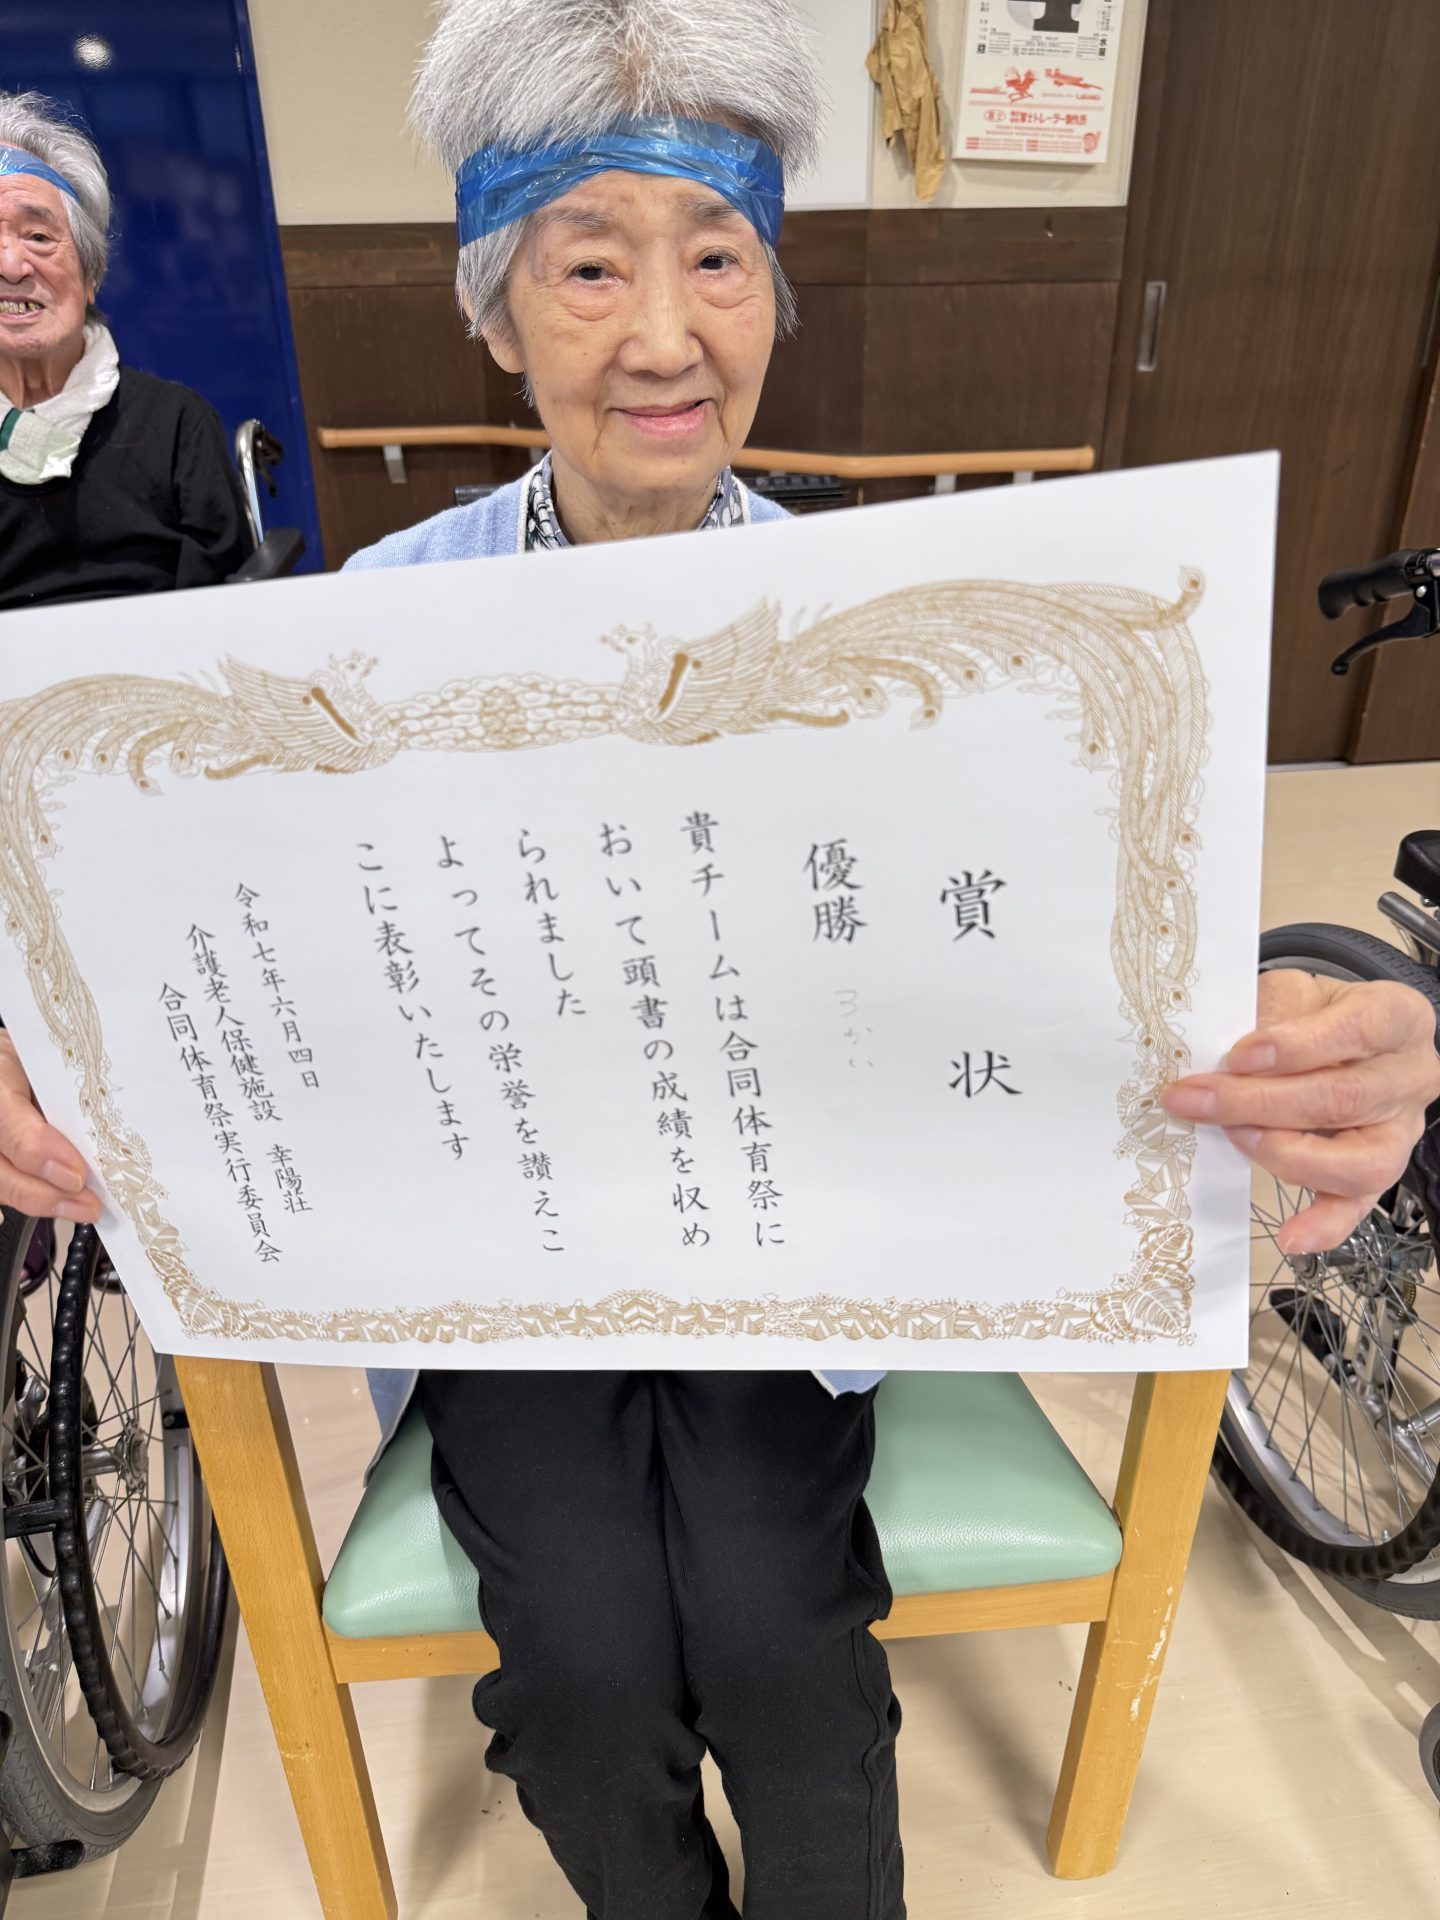 賞状
優勝 3かい
貴チームは合同体育祭に
おいて頭書の成績を収め
られました
よってその栄誉を讃えこ
こに表彰いたします
令和七年六月四日
介護老人保健施設 幸陽荘
合同体育祭実行委員会
4
(水曜)
富士トレーラー製作所